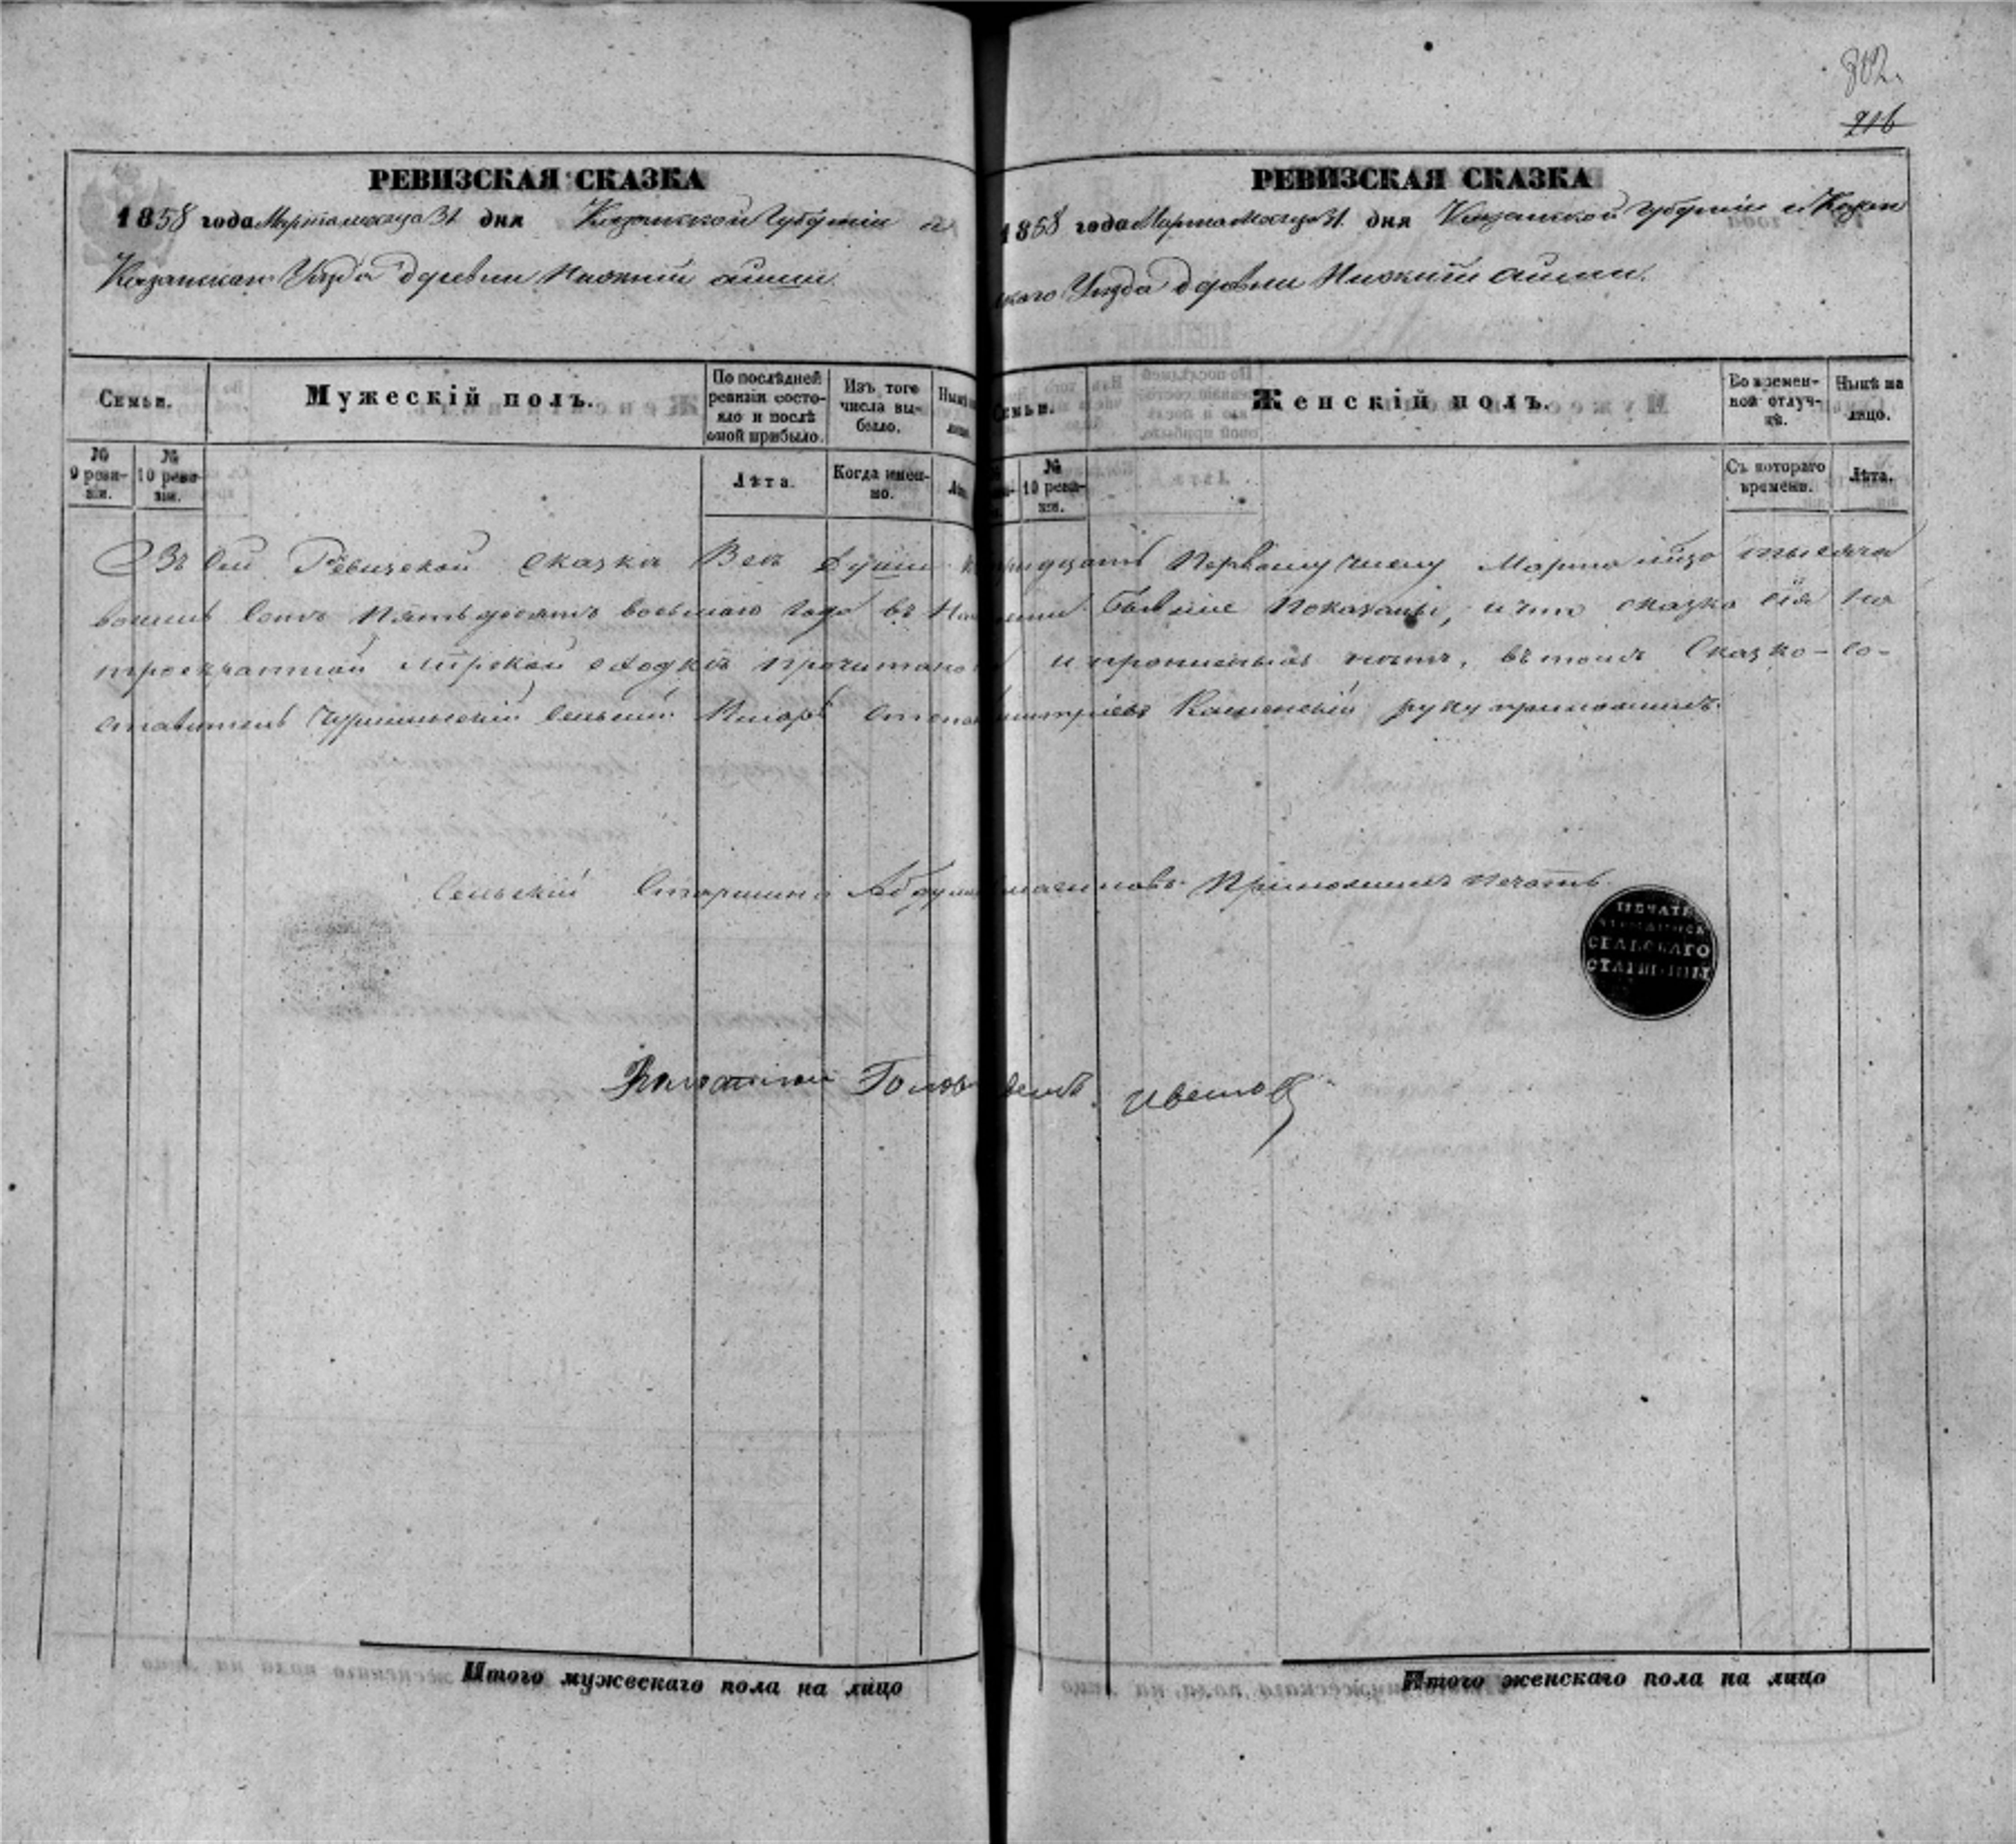 802.
216
РЕВИЗСКАЯ СКАЗКА
1858 года Марта месяца 31 дня Казанской Губерніи и
Казанскаго Уезда деревни Нижній аиши
Семьи.
Мужескій полъ.
По послѣдней ревизіи состояло и послѣ оной прибыло.
Изъ того числа выбыло.
Нынѣ
№ 9 ревизіи.
№ 10 ревизіи.
Лѣта.
Когда именно.
РЕВИЗСКАЯ СКАЗКА
1858 года Марта Месяца 31. дня Казанской Губерніи и Казан
скаго Уезда деревни Нижніи аиши.
Семьи.
Женскій полъ.
Во временной отлучкѣ.
Нынѣ на лицо.
№ 10 ревизіи.
Съ котораго времени.
Лѣта.
Въ сей Ревизской сказкѣ Все души к тридцать Первому числу Марта тысяча
восемь Сотъ Пятьдесятъ восьмаго года въ бывшіе показаны, и что сказка сія на
троекратной мирской сходкѣ прочитана въ томъ Сказко-со-
ставитель Сельскій Писарь руку приложилъ.
Сельскій Старшина Приложилъ Печать
ПЕЧАТЬ
СЕЛЬСКАГО
СТАРШИНЫ
Волостной Голова
Итого мужескаго пола на лицо
Итого женскаго пола на лицо